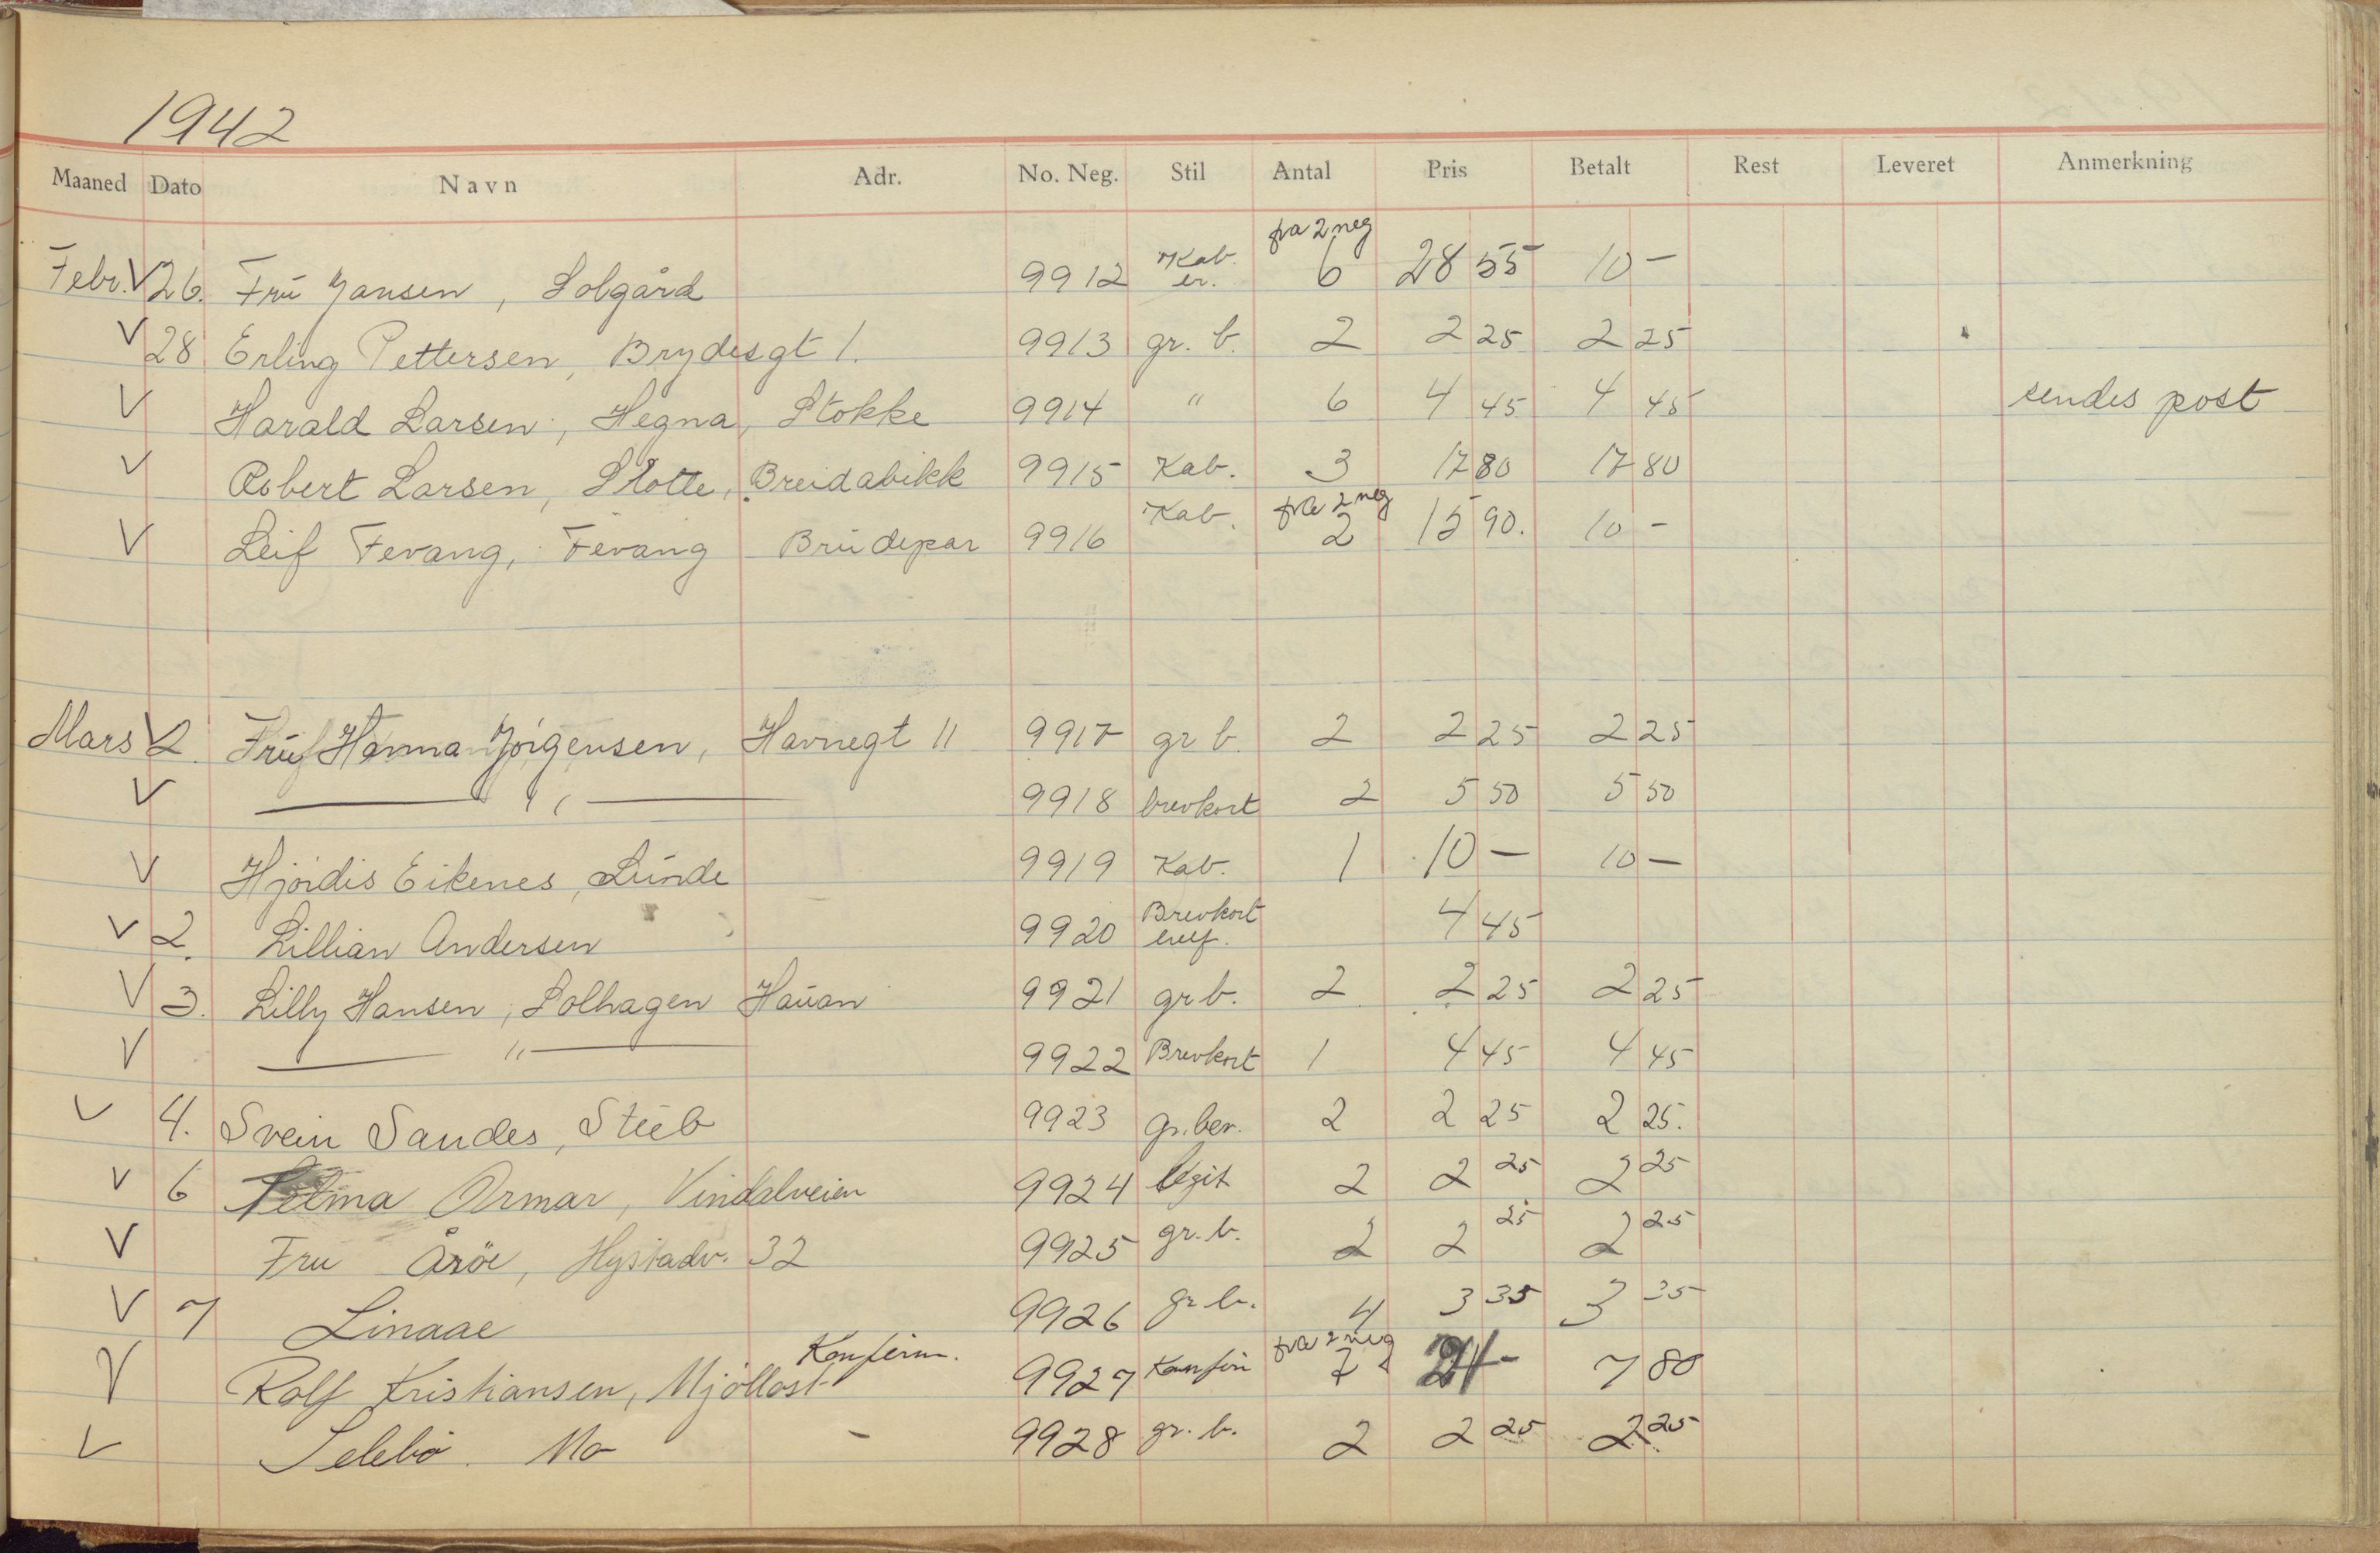 1942
Maaned Dato Navn Adr. No. Neg. Stil Antal Pris Betalt Rest Leveret Anmerkning
Febr. V 26. Frú Jansen, Solgård 9912 Kab. er. fra 2 neg 6 28 55 10 -
V 28 Erling Pettersen, Brydesgt 1. 9913 gr. b. 2 2 25 2 25
V Harald Larsen, Hegna, Stokke 9914 " 6 4 45 4 45 sendes post
V Robert Larsen, Slotte, Breidabikk 9915 Kab. 3 17 80 17 80
V Leif Fevang, Fevang Brúdepar 9916 Kab. fra 2 neg 2 15 90. 10 -
Mars V 2. Frú Hanna Jörgensen, Havnegt 11 9917 gr b. 2 2 25 2 25
V — " — 9918 brevkort 2 5 50 5 50
V Hjördis Eikenes, Lúnde 9919 Kab. 1 10 — 10 —
V 2. Lillian Andersen 9920 Brevkort 4 45
V 3. Lilly Hansen, Solhagen Haúan 9921 gr b. 2 2 25 2 25
V — " — 9922 Brevkort 1 4 45 4 45
V 4. Svein Sandes, Stúb 9923 gr. ber. 2 2 25 2 25.
V 6 Ormar, Vindalveien 9924 legit 2 2 25 2 25
V Fru Åröe, Hystadv. 32 9925 gr. b. 2 2 25 2 25
V 7 Linaae 9926 gr. b. 4 3 35 3 35
V Rolf Kristiansen, Mjöllost Konfirm. 9927 Konfir fra 2 neg 21 - 7 80
V Selebö. Mo - 9928 gr. b. 2 2 25 2 25